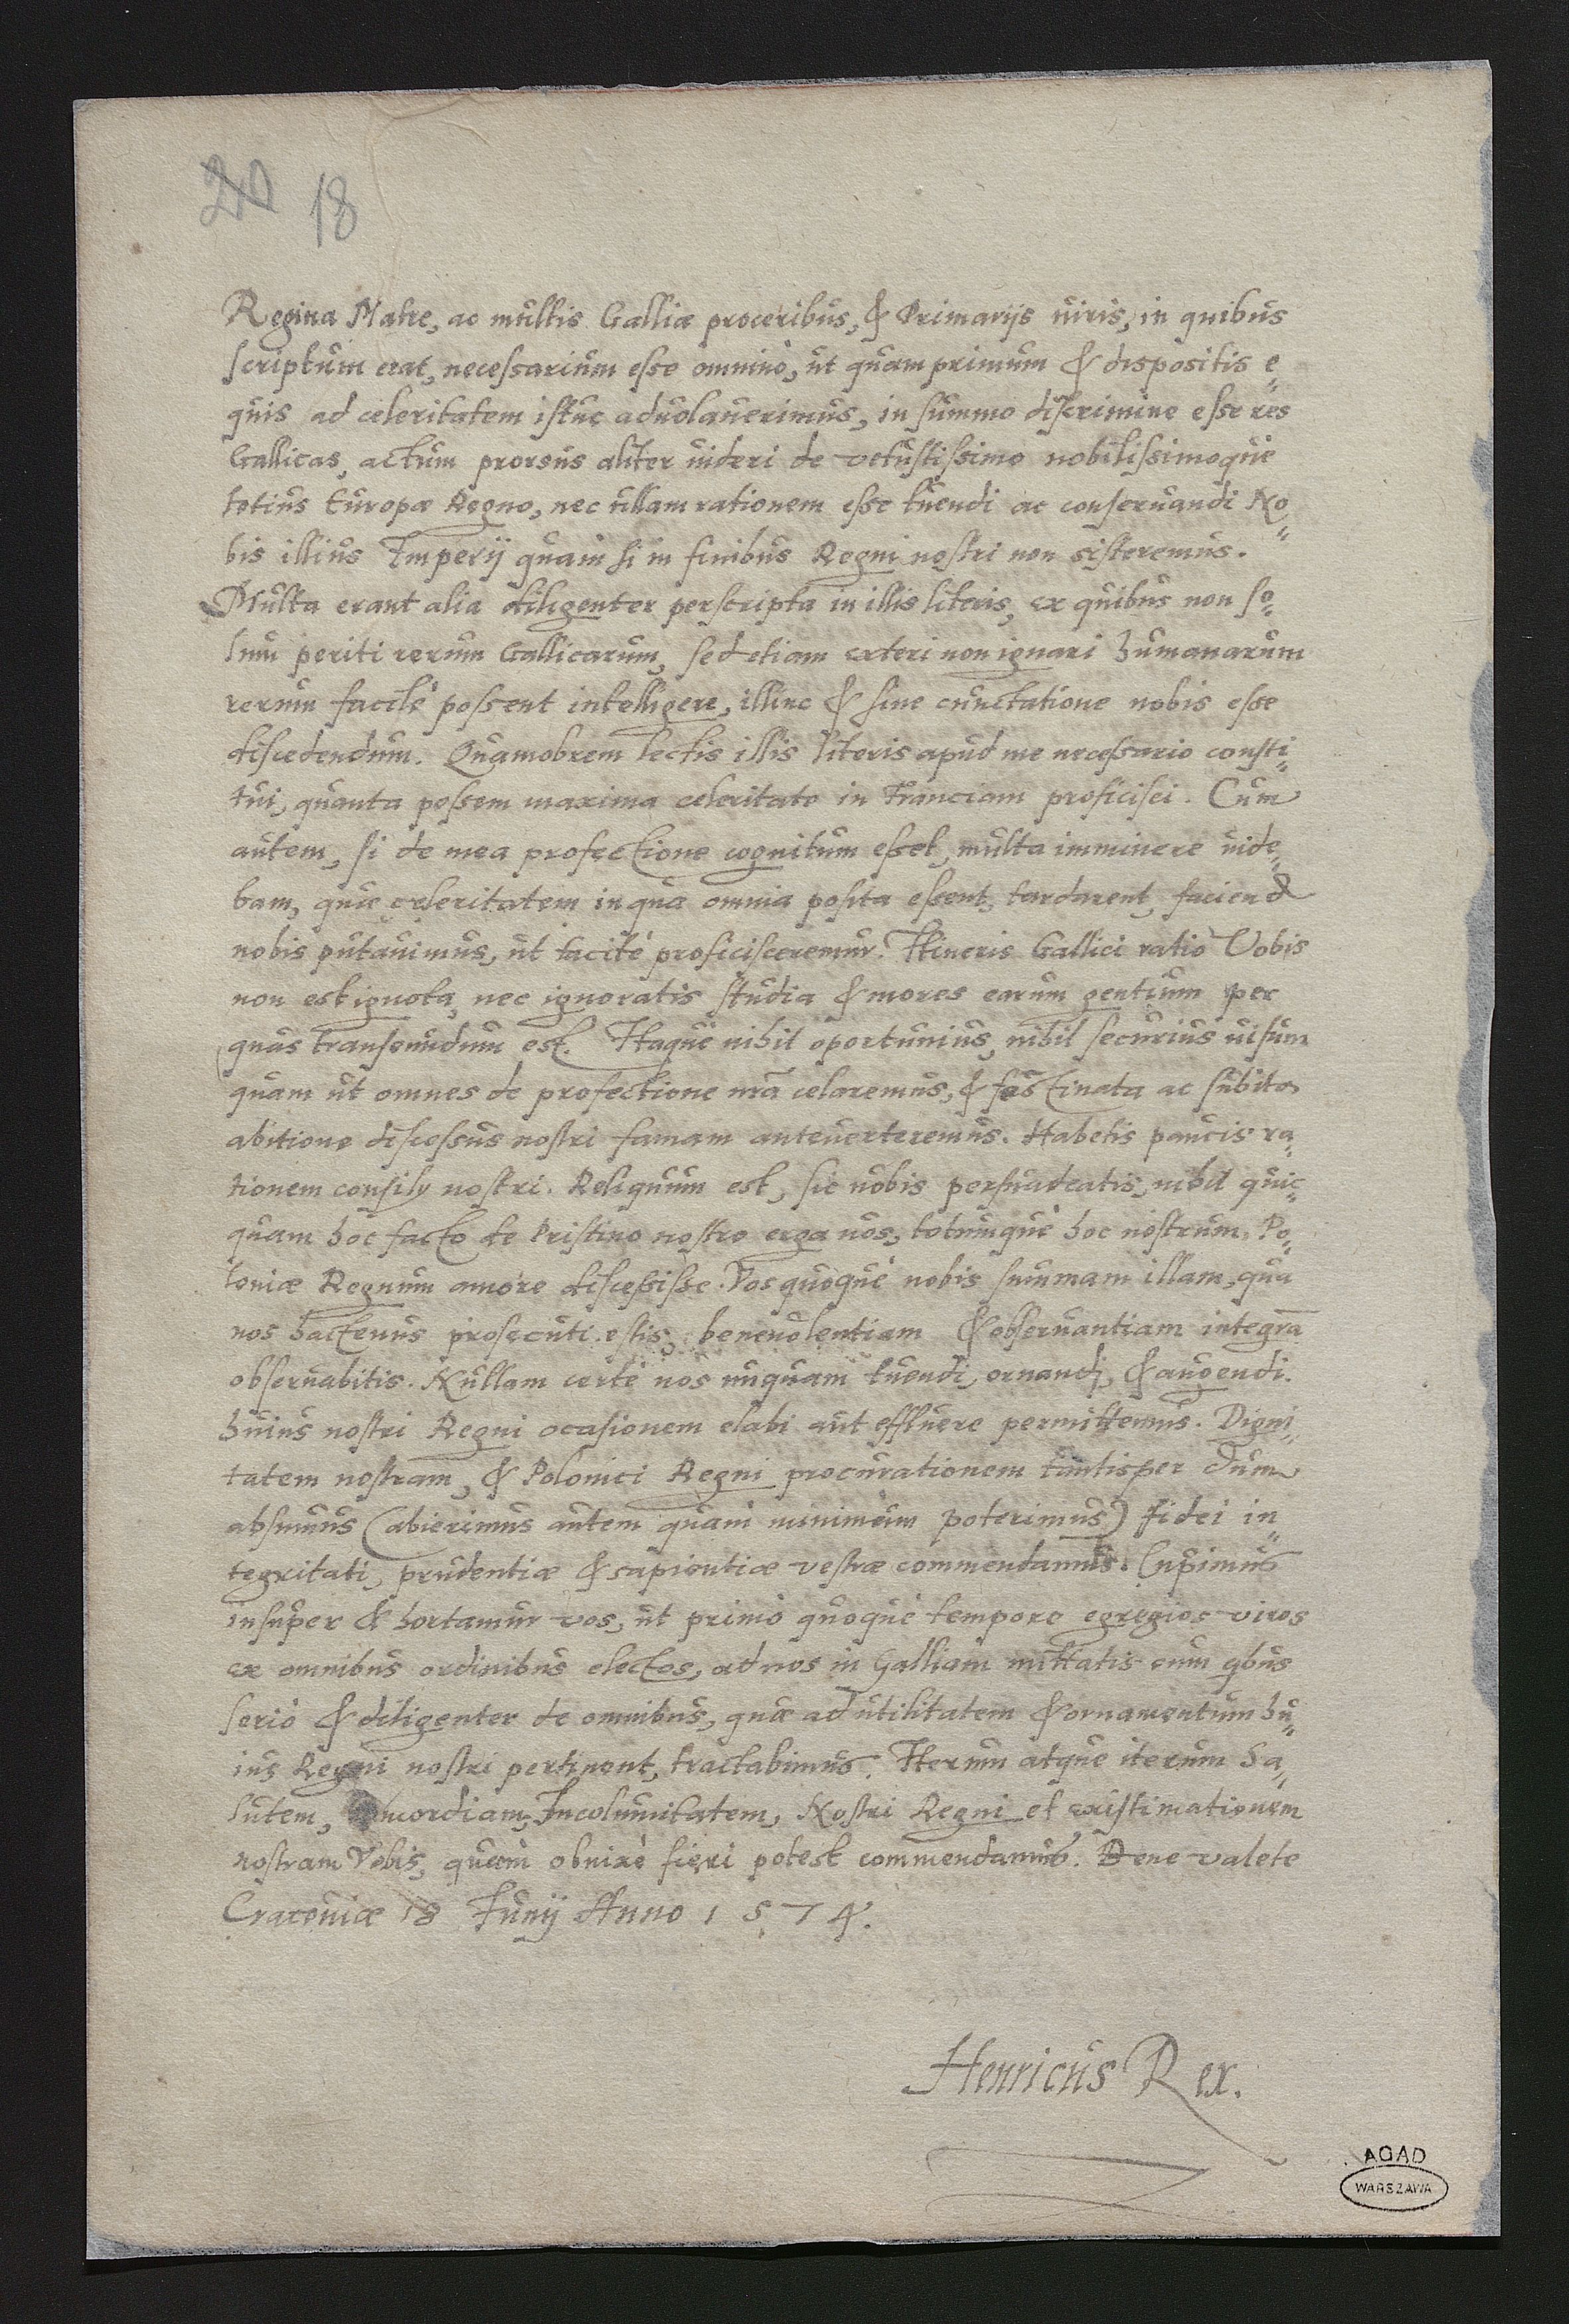 20 18
Regina Matre, ac multis Galliæ proceribus, & Primarijs uiris, in quibus
scriptum erat, necessarium esse omninò, ut quam primum & dispositis e„
quis ad celeritatem istuc aduolauerimus, in summo discrimine esse res
Gallicas, actum prorsus aliter uideri de vetustissimo nobilissimoque
totius Europæ Regno, nec ullam rationem esse tuendi ac conseruandi No„
bis illius Imperij quam si in finibus Regni nostri non sisteremus.
Multa erant alia diligenter perscripta in illis literis, ex quibus non so„
lum periti rerum Gallicarum, sed etiam exteri non ignari humanarum
rerum facilè possent intelligere, illinc & sine cunctatione nobis esse
discedendum. Quamobrem lectis illis literis apud me necessario consti„
tui, quanta possem maxima celeritate in Franciam proficisci. Cum
autem, si de mea profectione cognitum esset, multa imminere uide„
bam, quæ celeritatem in qua omnia posita essent, tardarent, faciend
nobis putauimus, ut tacitè proficisceremur. Itineris Gallici ratio Vobis
non est ignota, nec ignoratis studia & mores earum gentium per
quas transeundum est. Itaque nihil oportunius, nihil securius uisum
quam ut omnes de profectione nrã celaremus, & festinata ac subito
abitione discessus nostri famam anteuerteremus. Habetis paucis ra„
tionem consily nostri. Reliquum est, sic uobis persuadeatis, nihil quic„
quam hoc facto de Pristino nostro erga uos, totumque hoc nostrum, Po„
loniæ Regnum amore discessisse. Vos quoque nobis summam illam, qua
nos hactenus prosecuti estis, beneuolentiam & obseruantiam integrã
obseruabitis. Nullam certè nos unquam tuendi, ornandi, & augendi.
huius nostri Regni ocasionem elabi aut effluere permittemus. Digni„
tatem nostram, & Polonici Regni procurationem tantisper dum
absumus (abierimus autem quam minimum poterimus) fidei in„
tegritati, prudentiæ & sapientiæ vestræ commendamus. Cupimus
insuper & hortamur vos, ut primò quoque tempore egregios viros
ex omnibus ordinibus electos, ad nos in Galliam mittatis cum qbus
seriò & diligenter de omnibus, quæ ad utilitatem & ornamentum hu„
ius Regni nostri pertinent, tractabimus. Iterum atque iterum Sa„
lutem, Concordiam, Incolumitatem, Nostri Regni et existimationem
nostram Vobis, quam obnixè fieri potest commendamus. Bene valete
Cracouiæ 18 Iunij Anno 1574.
Henricus Rex.
AGAD
WARSZAWA